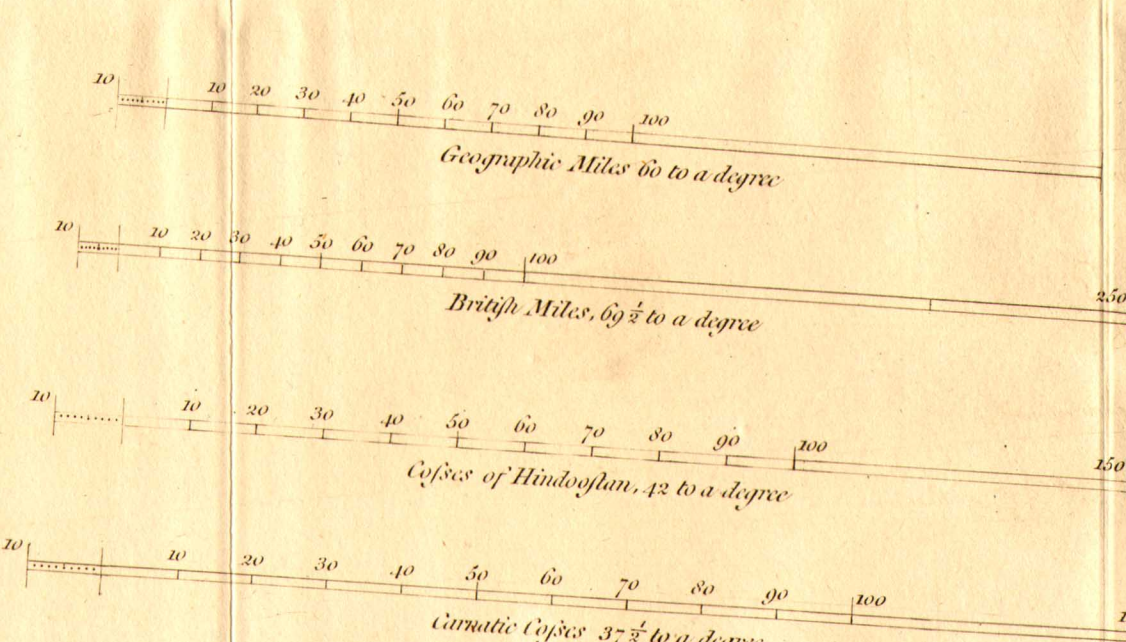 10 10 20 30 40 50 60 70 80 90 100
Geographic Miles 60 to a degree
10 10 20 30 40 50 60 70 80 90 100 250
Britiſh Miles, 69 1/2 to a degree
10 10 20 30 40 50 60 70 80 90 100 150
Coſses of Hindooſtan, 42 to a degree
10 10 20 30 40 50 60 70 80 90 100
Carnatic Coſses 37 1/2 to a degree